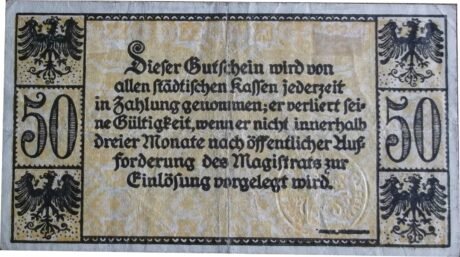 Dieser Gutschein wird von
50 allen städtischen Kassen jederzeit 50
in Zahlung genommen; er verliert sei-
ne Gültigkeit, wenn er nicht innerhalb
dreier Monate nach öffentlicher Auf-
forderung des Magistrats zur
Einlösung vorgelegt wird.